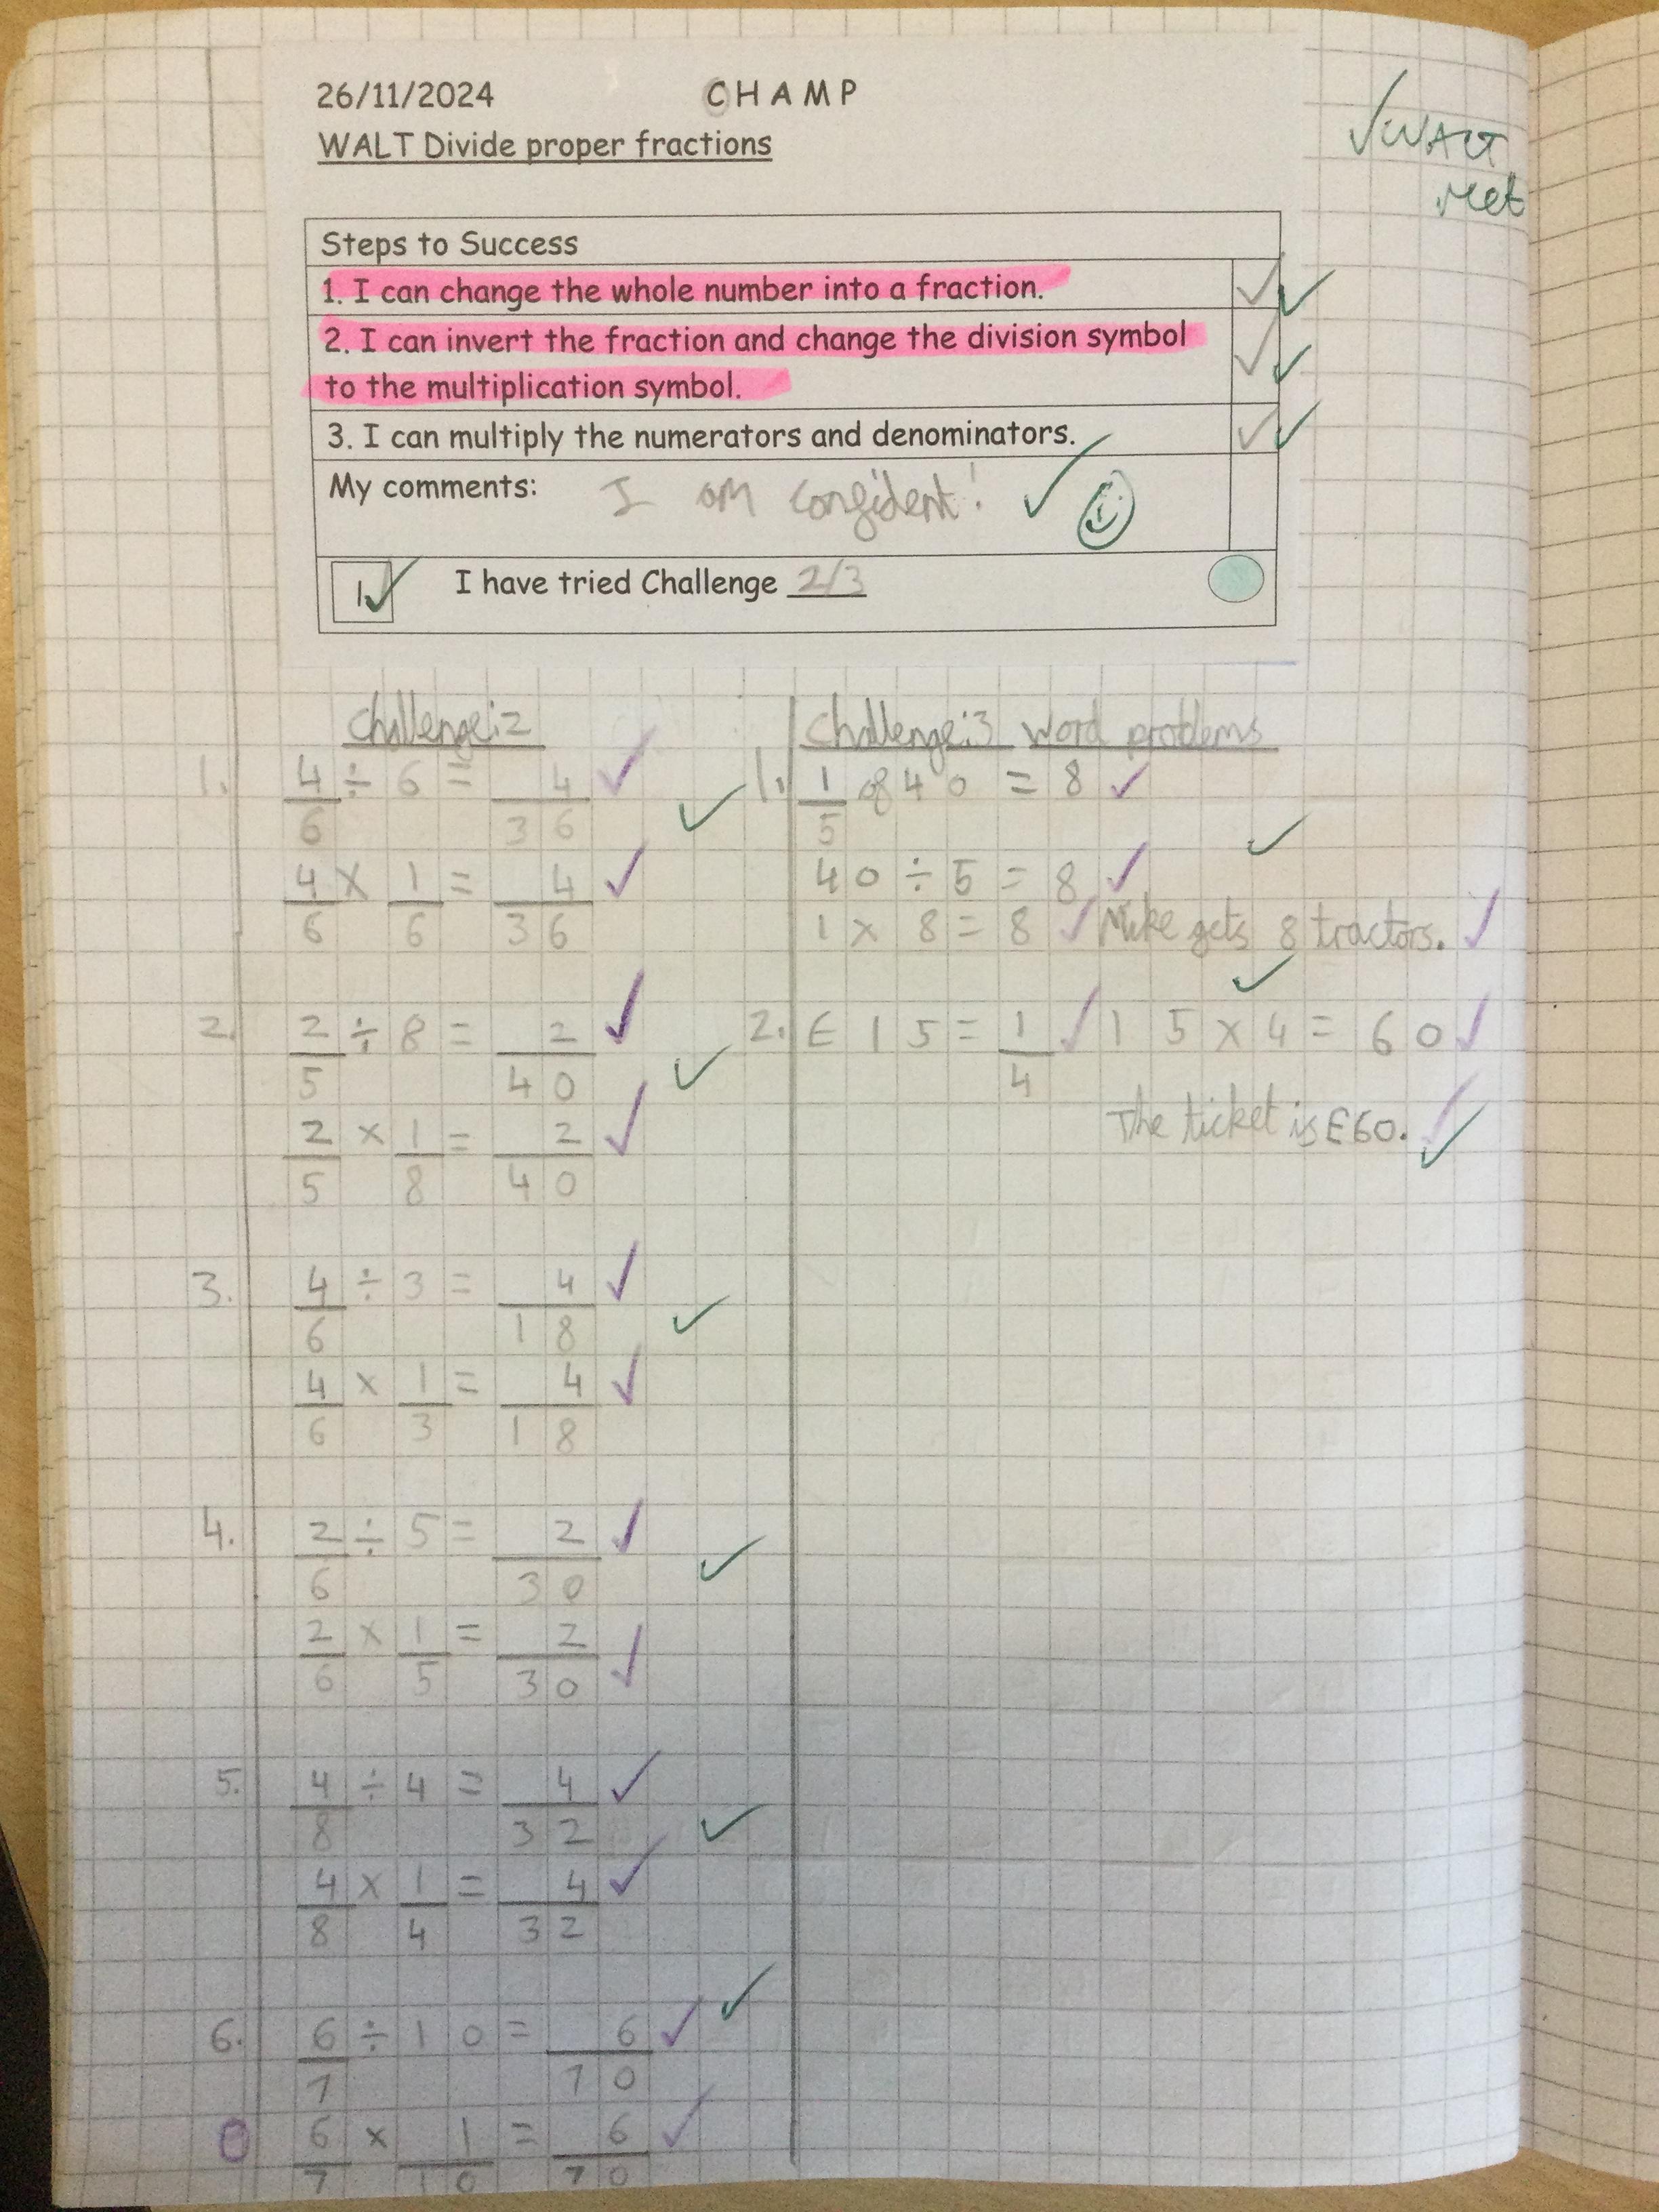 26/11/2024 C H A M P
WALT Divide proper fractions
✓ WALT
Met
Steps to Success
1. I can change the whole number into a fraction. ✓✓
2. I can invert the fraction and change the division symbol
to the multiplication symbol. ✓✓
3. I can multiply the numerators and denominators. ✓✓
My comments: I am confident! ✓
I have tried Challenge 2/3
Challenge:2
1. 4/6 ÷ 6 = 4/36 ✓
4/6 × 1/6 = 4/36 ✓
2. 2/5 ÷ 8 = 2/40 ✓
2/5 × 1/8 = 2/40 ✓
3. 4/6 ÷ 3 = 4/18 ✓
4/6 × 1/3 = 4/18 ✓
4. 2/6 ÷ 5 = 2/30 ✓
2/6 × 1/5 = 2/30 ✓
5. 4/8 ÷ 4 = 4/32 ✓
4/8 × 1/4 = 4/32 ✓
6. 6/7 ÷ 10 = 6/70 ✓
6/7 × 1/10 = 6/70 ✓
Challenge:3 word problems
1. 1/5 of 40 = 8 ✓
40 ÷ 5 = 8 ✓
1 × 8 = 8 ✓ Mike gets 8 tractors. ✓
2. £15 = 1/4 ✓ 15 × 4 = 60 ✓
The ticket is £60. ✓